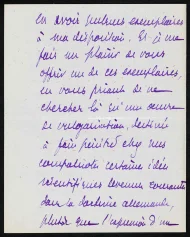 en avoir quelques exemplaires
à ma disposition. Et je me
fais un plaisir de vous
offrir un de ces exemplaires,
en vous priant de ne
chercher là qu'une œuvre
de vulgarisation, destinée
à faire pénétrer chez mes
compatriotes certaines idées
scientifiques devenues courantes
dans la doctrine allemande,
plutôt que l'expression d'une